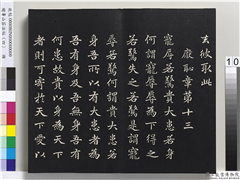 去彼取此
猒恥章第十三
寵辱若驚貴大患若身
何謂寵辱辱為下得之
若驚失之若驚是謂寵
辱若驚何謂貴大患若
身吾所以有大患者為
吾有身及吾無身吾有
何患故貴以身為天下
者則可寄於天下愛以